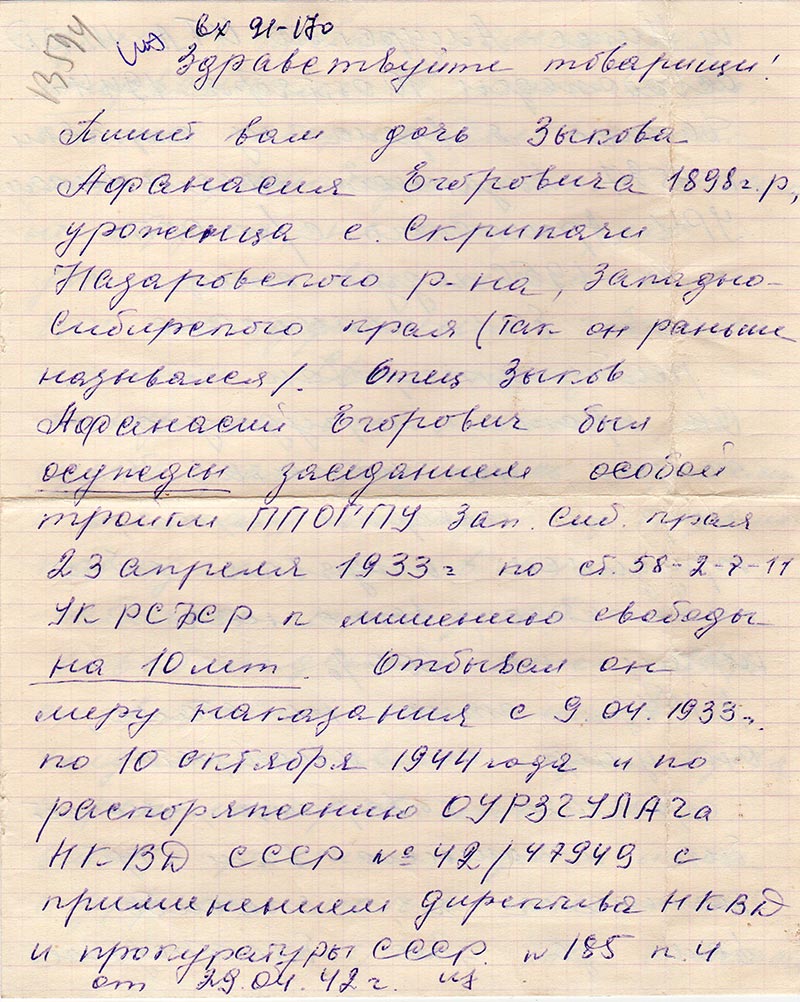 вх 91-170
В 594
Здравствуйте товарищи!
Пишет вам дочь Зыкова
Афанасия Егоровича 1898г.р,
уроженца с. Скрипачи
Назаровского р-на, Западно-
Сибирского края (так он раньше
назывался/. Отец Зыков
Афанасий Егорович был
осужден заседанием особой
тройки ППОГПУ Зап. Сиб. края
23 апреля 1933г по ст. 58-2-7-11
УК РСФСР к лишению свободы
на 10 лет. Отбывал он
меру наказания с 9.04.1933г.
по 10 октября 1944 года и по
распоряжению ОУРЗГУЛАГа
НКВД СССР № 42/47949 с
применением директива НКВД
и прокуратуры СССР № 185 п.4
от 29.04.42г. из